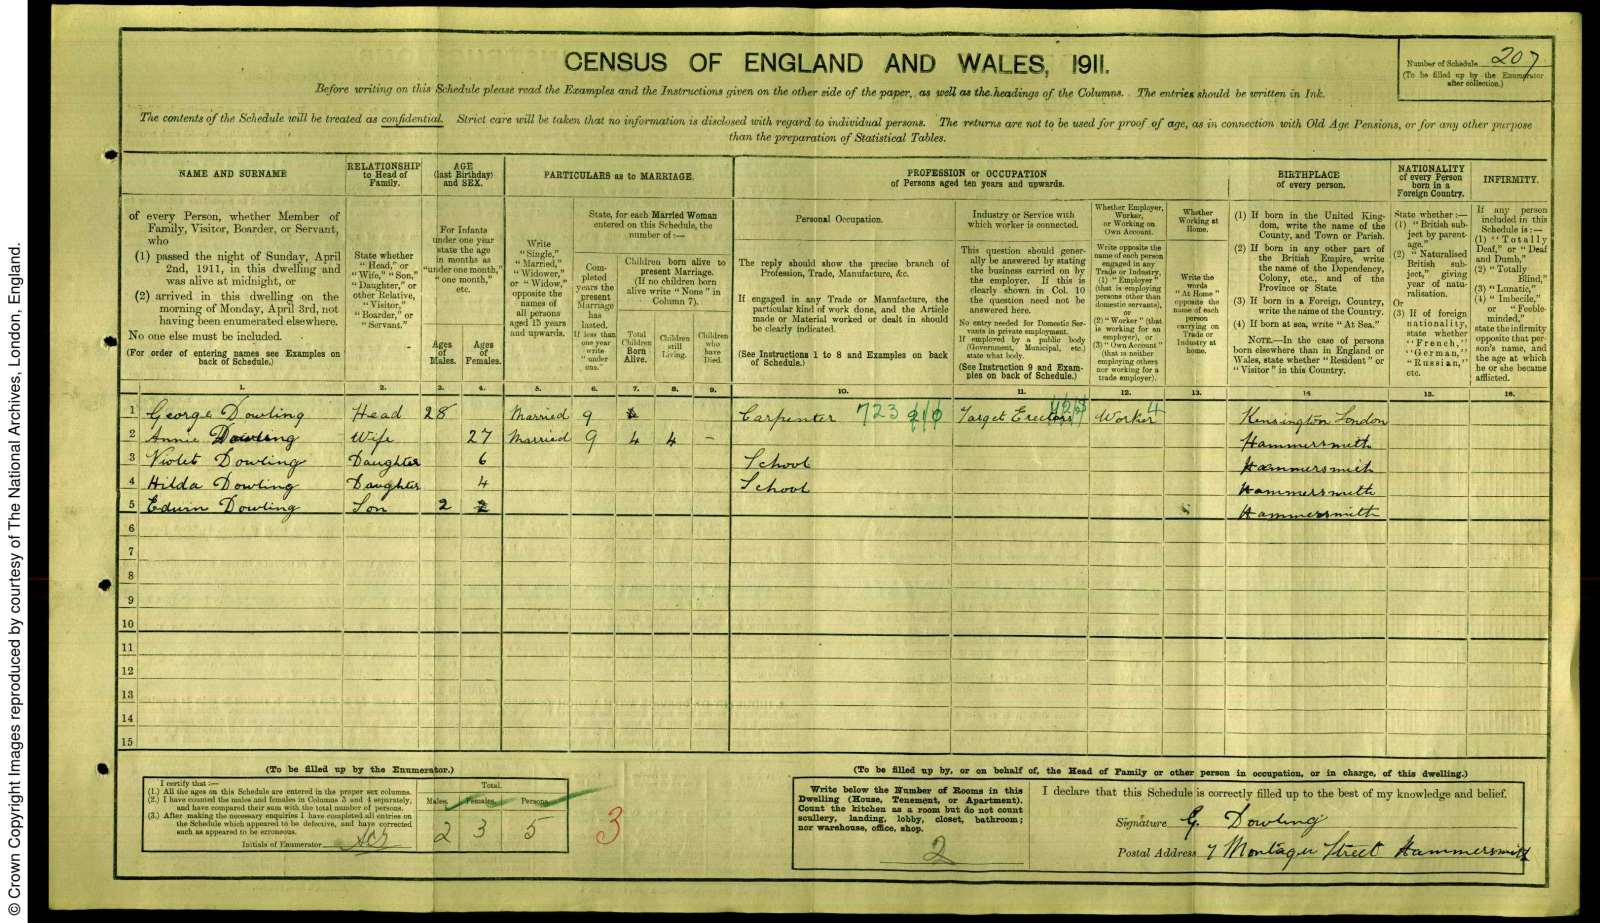 © Crown Copyright Images reproduced by courtesy of The National Archives, London, England.
CENSUS OF ENGLAND AND WALES, 1911.
Number of Schedule 207
(To be filled up by the Enumerator
after collection.)
Before writing on this Schedule please read the Examples and the Instructions given on the other side of the paper, as well as the headings of the Columns. The entries should be written in Ink.
The contents of the Schedule will be treated as confidential. Strict care will be taken that no information is disclosed with regard to individual persons. The returns are not to be used for proof of age, as in connection with Old Age Pensions, or for any other purpose
than the preparation of Statistical Tables.
NAME AND SURNAME
of every Person, whether Member of
Family, Visitor, Boarder, or Servant,
who
(1) passed the night of Sunday, April
2nd, 1911, in this dwelling and
was alive at midnight, or
(2) arrived in this dwelling on the
morning of Monday, April 3rd, not
having been enumerated elsewhere.
No one else must be included.
(For order of entering names see Examples on
back of Schedule.)
RELATIONSHIP
to Head of
Family.
State whether
"Head," or
"Wife," "Son,"
"Daughter," or
other Relative,
"Visitor,"
"Boarder," or
"Servant."
AGE
(last Birthday)
and SEX.
For Infants
under one year
state the age
in months as
"under one month,"
"one month,"
etc.
Ages
of
Males.
Ages
of
Females.
PARTICULARS as to MARRIAGE.
Write
"Single,"
"Married,"
"Widower,"
or "Widow,"
opposite the
names of
all persons
aged 15 years
and upwards.
State, for each Married Woman
entered on this Schedule, the
number of:—
Com-
pleted
years the
present
Marriage
has
lasted.
If less than
one year
write
"under
one."
Children born alive to
present Marriage.
(If no children born
alive write "None" in
Column 7).
Total
Children
Born
Alive.
Children
still
Living.
Children
who
have
Died.
PROFESSION or OCCUPATION
of Persons aged ten years and upwards.
Personal Occupation.
The reply should show the precise branch of
Profession, Trade, Manufacture, &c.
If engaged in any Trade or Manufacture, the
particular kind of work done, and the Article
made or Material worked or dealt in should
be clearly indicated.
(See Instructions 1 to 8 and Examples on back
of Schedule.)
Industry or Service with
which worker is connected.
This question should gener-
ally be answered by stating
the business carried on by
the employer. If this is
clearly shown in Col. 10
the question need not be
answered here.
No entry needed for Domestic Ser-
vants in private employment.
If employed by a public body
(Government, Municipal, etc.)
state what body.
(See Instruction 9 and Exam-
ples on back of Schedule.)
Whether Employer,
Worker,
or Working on
Own Account.
Write opposite the
name of each person
engaged in any
Trade or Industry,
(1) "Employer"
(that is employing
persons other than
domestic servants),
or
(2) "Worker" (that
is working for an
employer), or
(3) "Own Account"
(that is neither
employing others
nor working for a
trade employer).
Whether
Working at
Home.
Write the
words
"At Home"
opposite the
name of each
person
carrying on
Trade or
Industry at
home.
BIRTHPLACE
of every person.
(1) If born in the United King-
dom, write the name of the
County, and Town or Parish.
(2) If born in any other part of
the British Empire, write
the name of the Dependency,
Colony, etc., and of the
Province or State.
(3) If born in a Foreign Country,
write the name of the Country.
(4) If born at sea, write "At Sea."
NOTE.—In the case of persons
born elsewhere than in England or
Wales, state whether "Resident" or
"Visitor" in this Country.
NATIONALITY
of every Person
born in a
Foreign Country.
State whether:—
(1) "British sub-
ject by parent-
age."
(2) "Naturalised
British sub-
ject," giving
year of natu-
ralisation.
Or
(3) If of foreign
nationality,
state whether
"French,"
"German,"
"Russian,"
etc.
INFIRMITY.
If any person
included in this
Schedule is:—
(1) "Totally
Deaf," or "Deaf
and Dumb,"
(2) "Totally
Blind,"
(3) "Lunatic,"
(4) "Imbecile,"
or "Feeble-
minded,"
state the infirmity
opposite that per-
son's name, and
the age at which
he or she became
afflicted.
1. 2. 3. 4. 5. 6. 7. 8. 9. 10. 11. 12. 13. 14. 15. 16.
1 George Dowling Head 28 Married 9 Carpenter 723 Target Erectors Worker 4 Kensington London
2 Annie Dowling Wife 27 Married 9 4 4 – Hammersmith
3 Violet Dowling Daughter 6 School Hammersmith
4 Hilda Dowling Daughter 4 School Hammersmith
5 Edwin Dowling Son 2 Hammersmith
6
7
8
9
10
11
12
13
14
15
(To be filled up by the Enumerator.)
I certify that:—
(1.) All the ages on this Schedule are entered in the proper sex columns.
(2.) I have counted the males and females in Columns 3 and 4 separately,
and have compared their sum with the total number of persons.
(3.) After making the necessary enquiries I have completed all entries on
the Schedule which appeared to be defective, and have corrected
such as appeared to be erroneous.
Initials of Enumerator
Total.
Males. Females. Persons.
2 3 5
3
(To be filled up by, or on behalf of, the Head of Family or other person in occupation, or in charge, of this dwelling.)
Write below the Number of Rooms in this
Dwelling (House, Tenement, or Apartment).
Count the kitchen as a room but do not count
scullery, landing, lobby, closet, bathroom;
nor warehouse, office, shop.
2
I declare that this Schedule is correctly filled up to the best of my knowledge and belief.
Signature G. Dowling
Postal Address 7 Montague Street Hammersmith